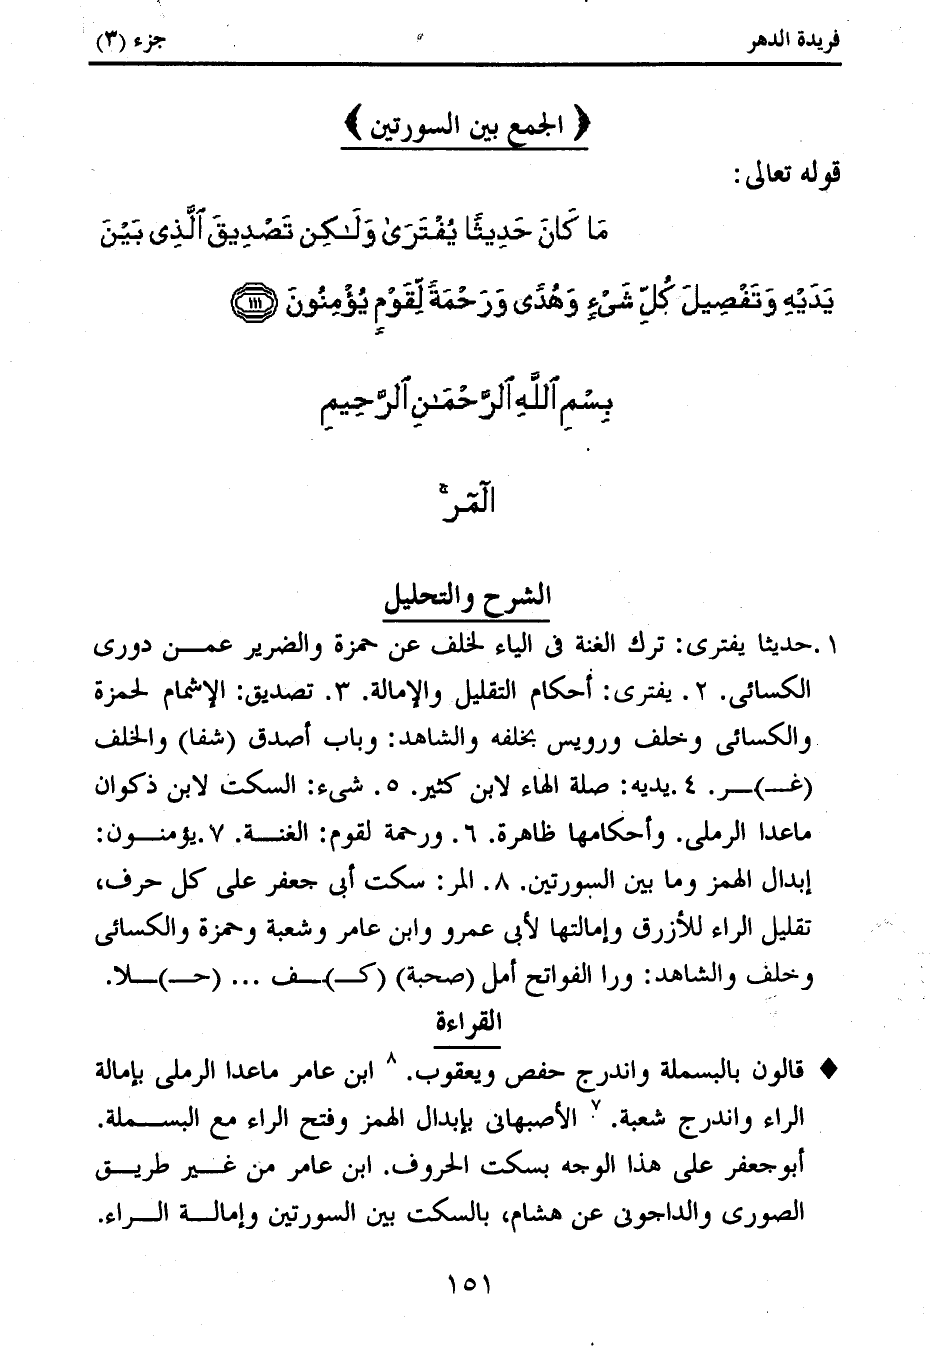 فريدة الدهر
جزء (٣)
﴿ الجمع بين السورتين ﴾
قوله تعالى:
مَا كَانَ حَدِيثًا يُفْتَرَىٰ وَلَـٰكِن تَصْدِيقَ ٱلَّذِى بَيْنَ
يَدَيْهِ وَتَفْصِيلَ كُلِّ شَىْءٍ وَهُدًى وَرَحْمَةً لِّقَوْمٍ يُؤْمِنُونَ ١١١
بِسْمِ ٱللَّهِ ٱلرَّحْمَـٰنِ ٱلرَّحِيمِ
الٓمٓرۚ
الشرح والتحليل
١. حديثا يفترى: ترك الغنة فى الياء لخلف عن حمزة والضرير عمـــن دورى
الكسائى. ٢. يفترى: أحكام التقليل والإمالة. ٣. تصديق: الإشمام لحمزة
والكسائى وخلف ورويس بخلفه والشاهد: وباب أصدق (شفا) والخلف
(غــ)ــر. ٤.يديه: صلة الهاء لابن كثير. ٥. شىء: السكت لابن ذكوان
ماعدا الرملى. وأحكامها ظاهرة. ٦. ورحمة لقوم: الغنــة. ٧.يؤمنــون:
إبدال الهمز وما بين السورتين. ٨. المر: سكت أبى جعفر على كل حرف،
تقليل الراء للأزرق وإمالتها لأبى عمرو وابن عامر وشعبة وحمزة والكسائى
وخلف والشاهد: ورا الفواتح أمل (صحبة) (كــ)ــف ... (حــ)ــلا.
القراءة
♦ قالون بالبسملة واندرج حفص ويعقوب. ٨ ابن عامر ماعدا الرملى بإمالة
الراء واندرج شعبة. ٧ الأصبهانى بإبدال الهمز وفتح الراء مع البســملة.
أبوجعفر على هذا الوجه بسكت الحروف. ابن عامر من غــير طريــق
الصورى والداجونى عن هشام، بالسكت بين السورتين وإمالــة الــراء.
١٥١